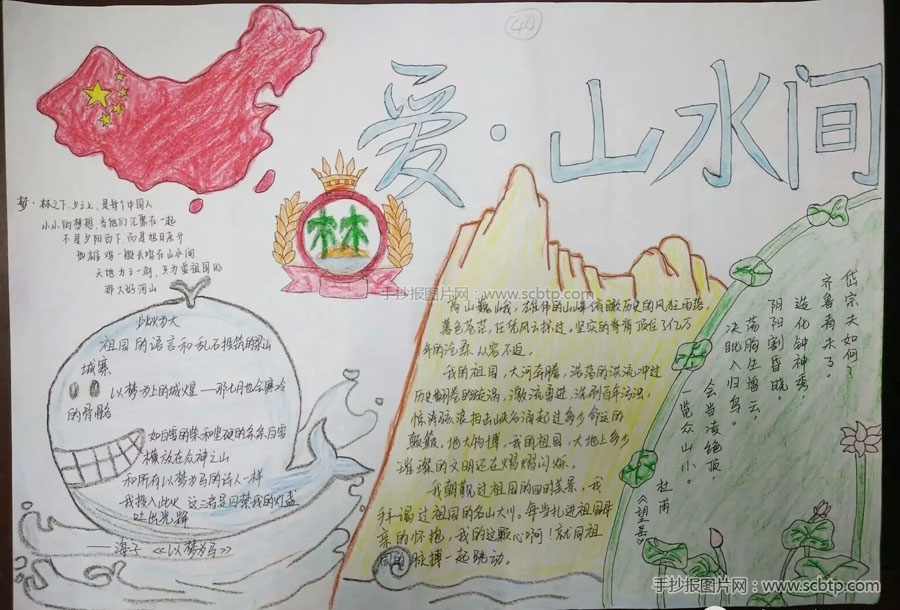 40
爱·山水间
小小的梦想,当他们汇聚在一起
不是夕阳西下,而是旭日东升
那大好河山
此火为大
祖国的语言和乱石投筑的梁山
城寨
以梦为上的敦煌——那七月也会寒冷
的骨骼
如白雪的柴和坚硬的条条白雪
横放在众神之山
和所有以梦为马的诗人一样
我投入此火 这三者是囚禁我的灯盏
吐出光辉
——海子《以梦为马》
高山巍峨,雄伟的山峰俯瞰历史的风狂雨落,
暮色苍茫,任凭风云掠过,坚实的脊背顶住了亿万
年的沧桑从容不迫。
我的祖国,大河奔腾,浩荡的洪流冲过
历史翻卷的漩涡,激流勇进,洗刷百年污浊,
惊涛骇浪拍击峡谷涌起过多少命运的
颠簸,地大物博,我的祖国,大地上多少
璀璨的文明还在熠熠闪烁。
我朝觐过祖国的四时美景,我
拜谒过祖国的名山大川。每当扎进祖国母
亲的怀抱,我的这颗心啊!就同祖
国的脉搏一起跳动。
岱宗夫如何?
齐鲁青未了。
造化钟神秀,
阴阳割昏晓。
荡胸生曾云,
决眦入归鸟。
会当凌绝顶,
一览众山小。
杜甫
《望岳》
手抄报图片网:www.scbtp.com
手抄报图片网:www.scbtp.com